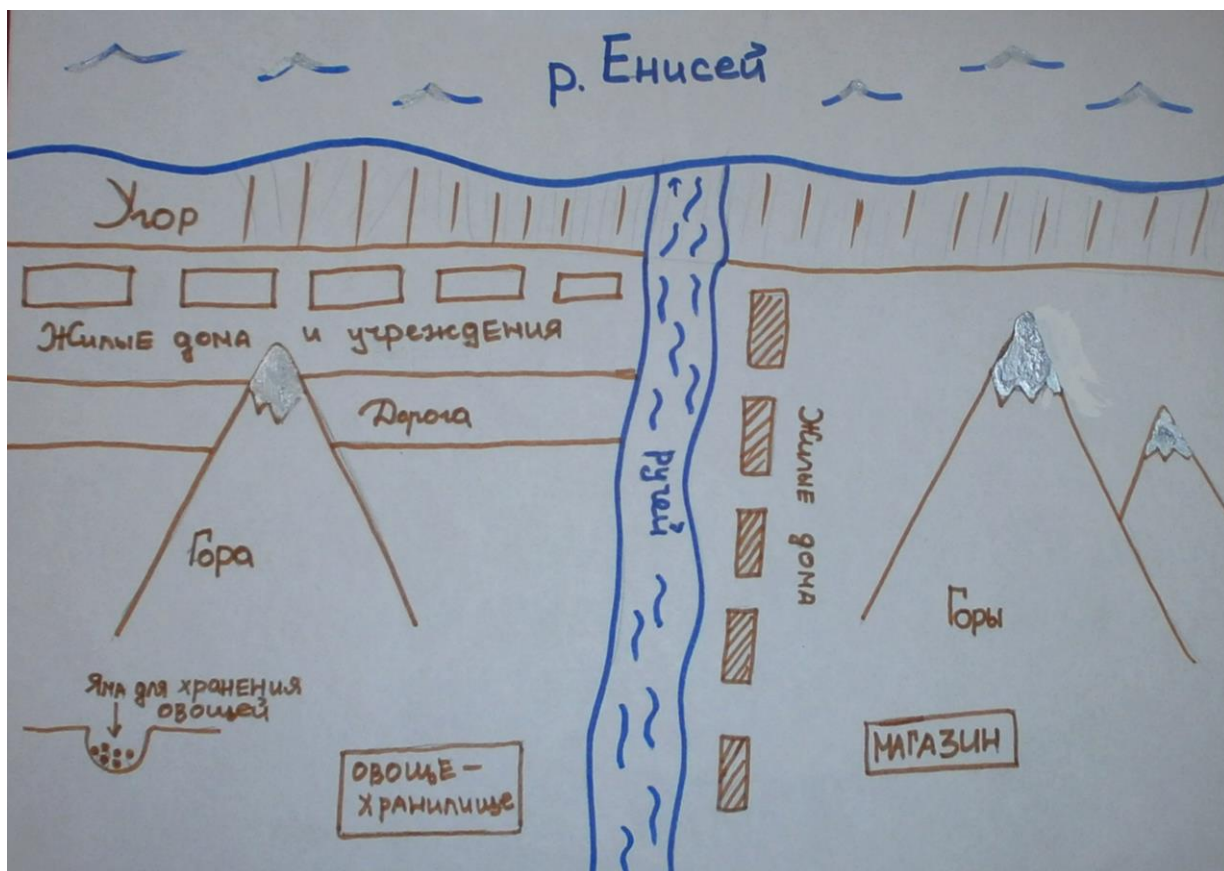 р. Енисей
Угор
Жилые дома и учреждения
Дорога
Ручей
Жилые дома
Гора
Горы
Яма для хранения
овощей
ОВОЩЕ-
ХРАНИЛИЩЕ
МАГАЗИН